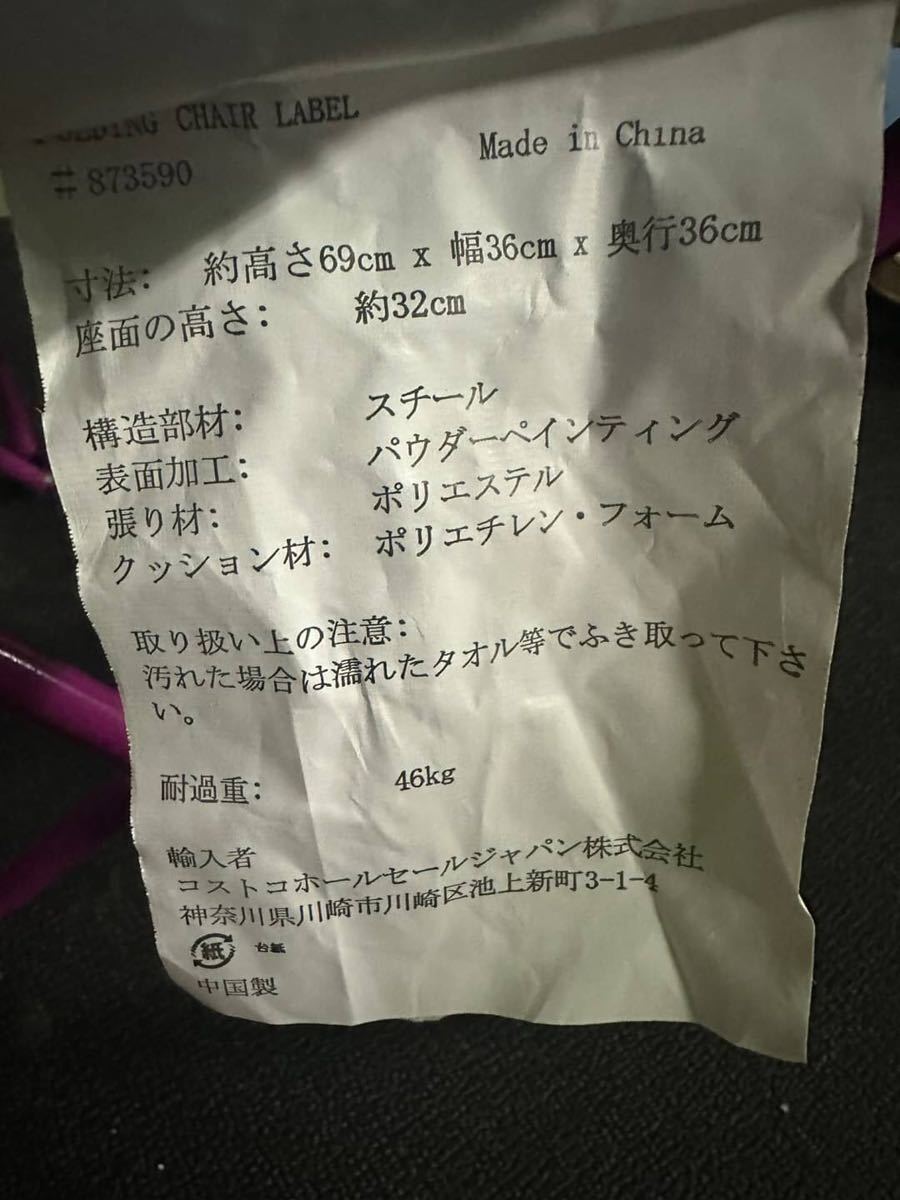 FOLDING CHAIR LABEL
Made in China
#873590
寸法: 約高さ69cm x 幅36cm x 奥行36cm
座面の高さ: 約32cm
構造部材: スチール
表面加工: パウダーペインティング
張り材: ポリエステル
クッション材: ポリエチレン・フォーム
取り扱い上の注意:
汚れた場合は濡れたタオル等でふき取って下さ
い。
耐過重: 46kg
輸入者
コストコホールセールジャパン株式会社
神奈川県川崎市川崎区池上新町3-1-4
紙 台紙
中国製